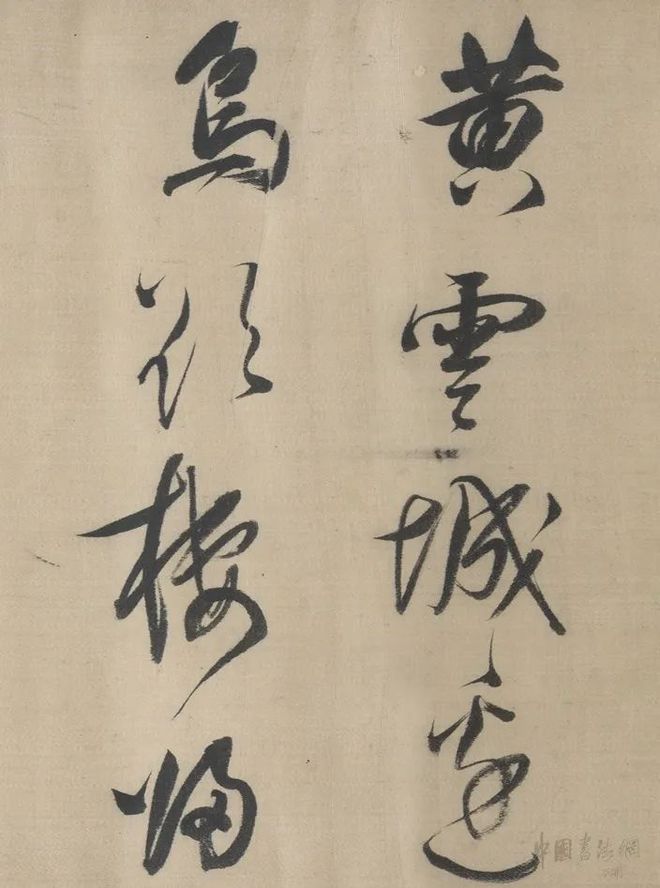 黄雲城邊
烏欲棲歸
中國書法網